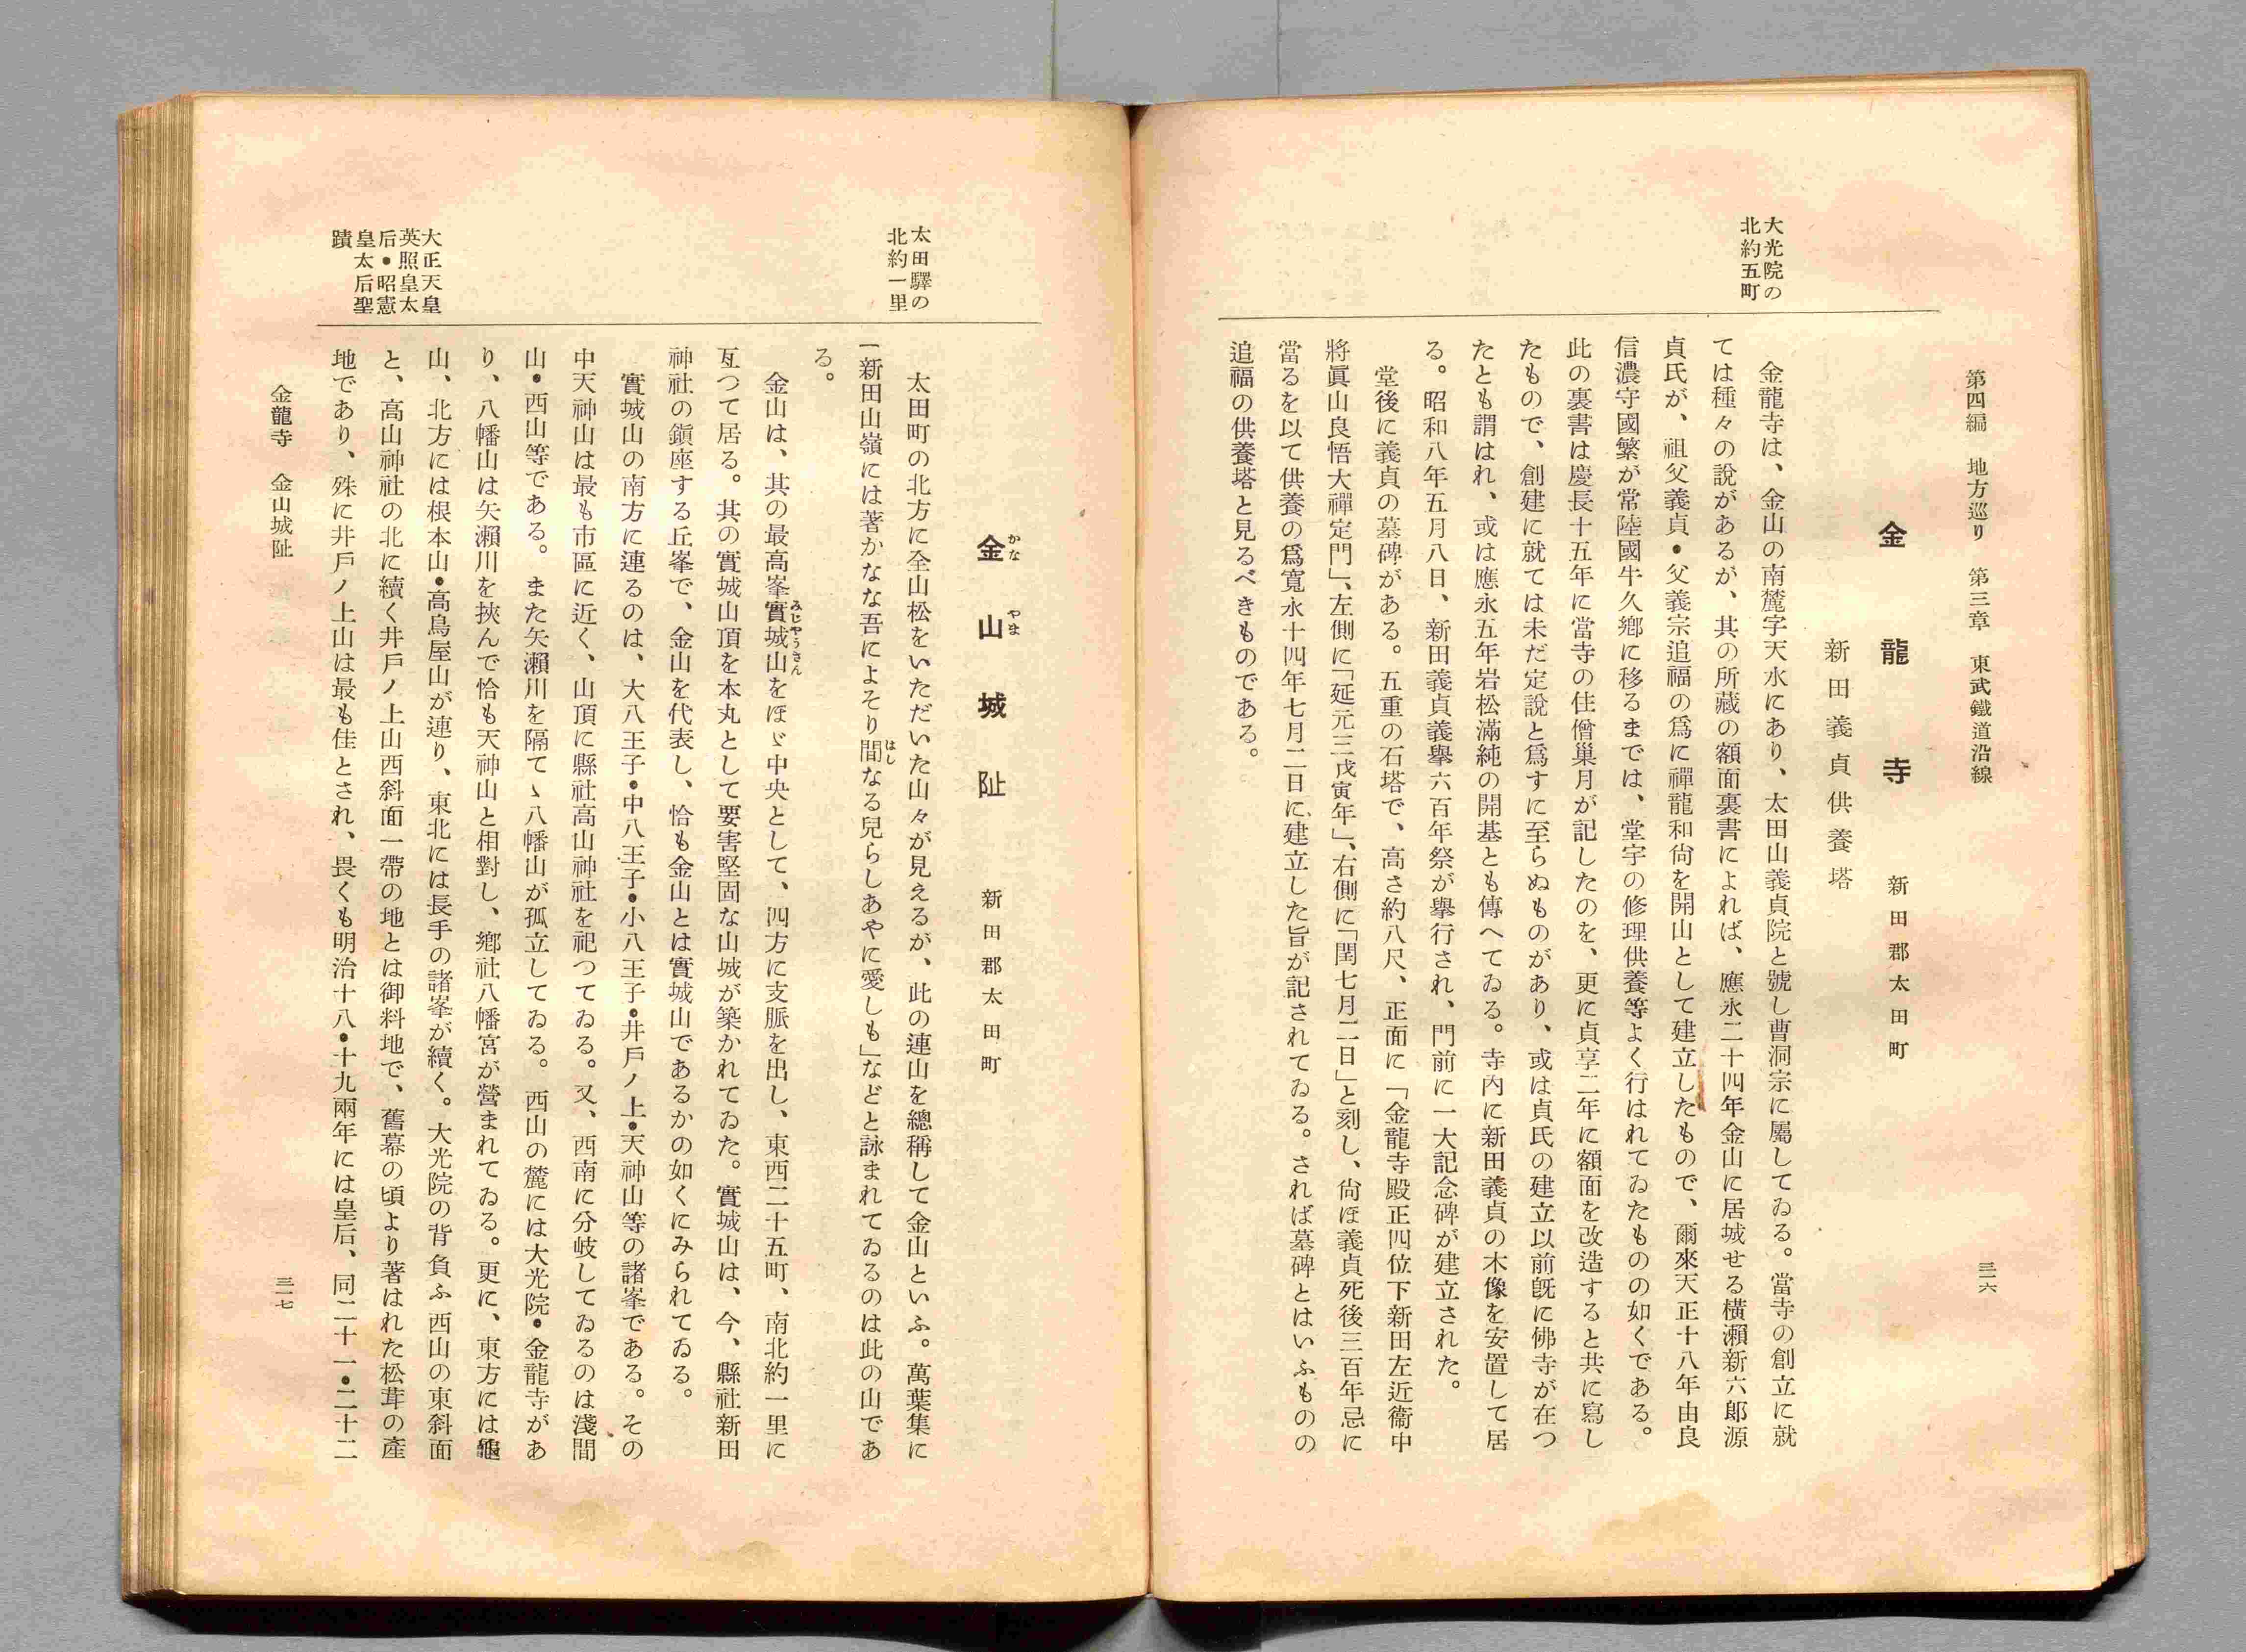 第四編　地方巡り　第三章　東武鐵道沿線
三一六
大光院の
北約五町
金龍寺　新田郡太田町
新田義貞供養塔
金龍寺は、金山の南麓字天水にあり、太田山義貞院と號し曹洞宗に屬してゐる。當寺の創立に就
ては種々の說があるが、其の所藏の額面裏書によれば、應永二十四年金山に居城せる橫瀨新六郞源
貞氏が、祖父義貞・父義宗追福の爲に禪龍和尙を開山として建立したもので、爾來天正十八年由良
信濃守國繁が常陸國牛久鄕に移るまでは、堂宇の修理供養等よく行はれてゐたものの如くである。
此の裏書は慶長十五年に當寺の住僧巢月が記したのを、更に貞享二年に額面を改造すると共に寫し
たもので、創建に就ては未だ定說と爲すに至らぬものがあり、或は貞氏の建立以前旣に佛寺が在つ
たとも謂はれ、或は應永五年岩松滿純の開基とも傳へてゐる。寺內に新田義貞の木像を安置して居
る。昭和八年五月八日、新田義貞義擧六百年祭が擧行され、門前に一大記念碑が建立された。
堂後に義貞の墓碑がある。五重の石塔で、高さ約八尺、正面に「金龍寺殿正四位下新田左近衞中
將眞山良悟大禪定門」、左側に「延元三戊寅年」、右側に「閏七月二日」と刻し、尙ほ義貞死後三百年忌に
當るを以て供養の爲寬永十四年七月二日に建立した旨が記されてゐる。されば墓碑とはいふものの
追福の供養塔と見るべきものである。
太田驛の
北約一里
金山城阯　新田郡太田町
かなやま
太田町の北方に全山松をいただいた山々が見えるが、此の連山を總稱して金山といふ。萬葉集に
「新田山嶺には著かなな吾によそり間なる兒らしあやに愛しも」などと詠まれてゐるのは此の山であ
はし
る。
金山は、其の最高峯實城山をほゞ中央として、四方に支脈を出し、東西二十五町、南北約一里に
みじやうさん
亙つて居る。其の實城山頂を本丸として要害堅固な山城が築かれてゐた。實城山は、今、縣社新田
神社の鎭座する丘峯で、金山を代表し、恰も金山とは實城山であるかの如くにみられてゐる。
實城山の南方に連るのは、大八王子・中八王子・小八王子・井戶ノ上・天神山等の諸峯である。その
中天神山は最も市區に近く、山頂に縣社高山神社を祀つてゐる。又、西南に分岐してゐるのは淺間
山・西山等である。また矢瀨川を隔てゝ八幡山が孤立してゐる。西山の麓には大光院・金龍寺があ
り、八幡山は矢瀨川を挾んで恰も天神山と相對し、鄕社八幡宮が營まれてゐる。更に、東方には龜
山、北方には根本山・高鳥屋山が連り、東北には長手の諸峯が續く。大光院の背負ふ西山の東斜面
と、高山神社の北に續く井戶ノ上山西斜面一帶の地とは御料地で、舊幕の頃より著はれた松茸の產
地であり、殊に井戶ノ上山は最も佳とされ、畏くも明治十八・十九兩年には皇后、同二十一・二十二
大正天皇
英照皇太
后・昭憲
皇太后聖
蹟
金龍寺　金山城阯
三一七